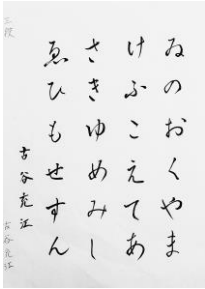 ゐのおくやま
けふこえてあ
さきゆめみし
ゑひもせすん
古谷充江
三段
古谷充江